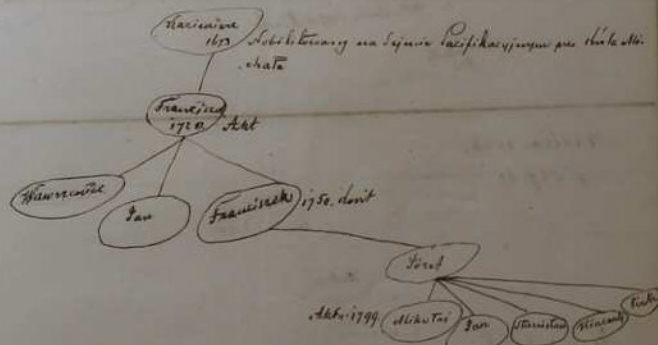 Kazimierz
1673 Nobilitowany na Sejmie Pacifikacyjnym przez Króla Mi-
chała
Franciszek
1720. Akt
Wawrzeniec
Jan
Franciszek 1750.
Józef
Akt. 1799. Mikołaj
Jan
Stanisław
Wincenty